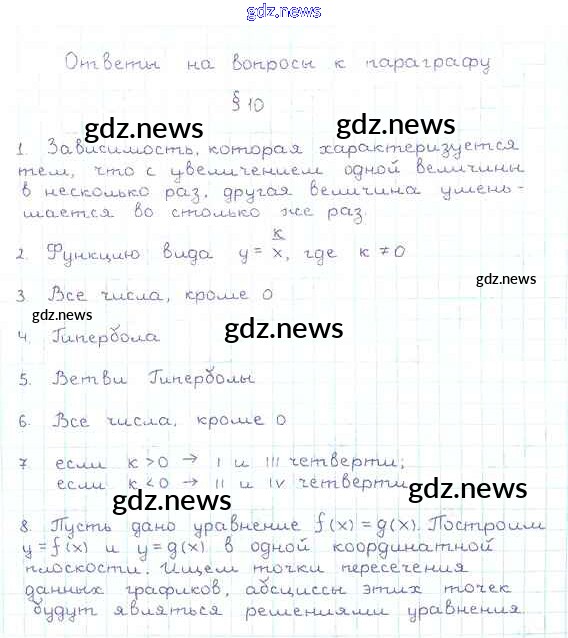 gdz.news
Ответы на вопросы к параграфу
§ 10
gdz.news
gdz.news
1. Зависимость, которая характеризуется
тем, что с увеличением одной величины
в несколько раз, другая величина умень-
шается во столько же раз.
2. Функцию вида y = k/x, где k ≠ 0
gdz.news
3. Все числа, кроме 0
gdz.news
4. Гипербола
gdz.news
5. Ветви Гиперболы
6. Все числа, кроме 0
7 если k > 0 → I и III четверти;
если k < 0 → II и IV четверти
gdz.news
gdz.news
8. Пусть дано уравнение f(x) = g(x). Построим
y = f(x) и y = g(x) в одной координатной
плоскости. Ищем точки пересечения
данных графиков, абсциссы этих точек
будут являться решениями уравнения.